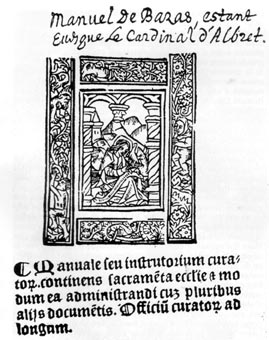 Manuel de Bazas, estant
Evesque le Cardinal d'Albret.
¶ Manuale seu instrutorium cura-
toꝝ. continens sacramēta ecclie ⁊ mo
dum ea administrandi cuꝫ pluribus
alijs documētis. Officiū curatoꝝ ad
longum.